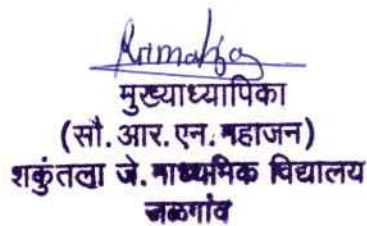 मुख्याध्यापिका
(सौ. आर. एन. महाजन)
शकुंतला जे. माध्यमिक विद्यालय
जळगांव